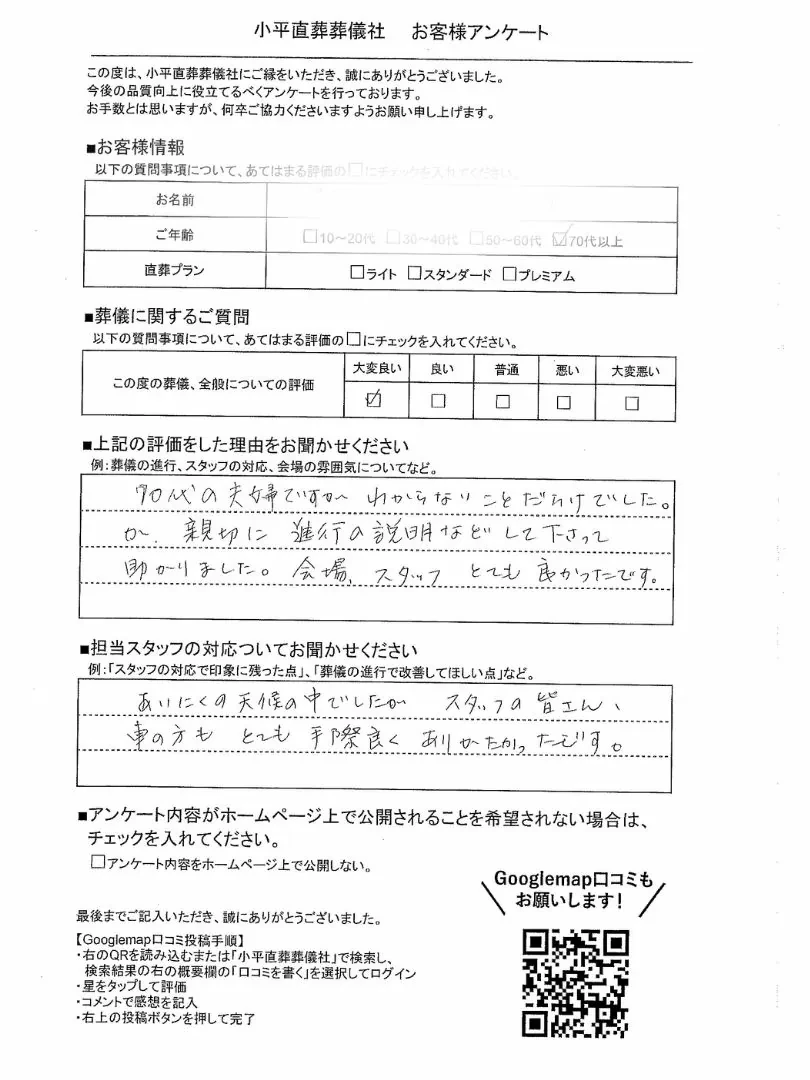 小平直葬葬儀社 お客様アンケート
この度は、小平直葬葬儀社にご縁をいただき、誠にありがとうございました。
今後の品質向上に役立てるべくアンケートを行っております。
お手数とは思いますが、何卒ご協力くださいますようお願い申し上げます。
■お客様情報
以下の質問事項について、あてはまる評価の□にチェックを入れてください。
お名前
ご年齢 □10~20代 □30~40代 □50~60代 ☑70代以上
直葬プラン □ライト □スタンダード □プレミアム
■葬儀に関するご質問
以下の質問事項について、あてはまる評価の□にチェックを入れてください。
この度の葬儀、全般についての評価
大変良い 良い 普通 悪い 大変悪い
☑ □ □ □ □
■上記の評価をした理由をお聞かせください
例:葬儀の進行、スタッフの対応、会場の雰囲気についてなど。
70代の夫婦ですが わからないことだらけでした。
が、親切に 進行の説明などして下さって
助かりました。会場、スタッフ とても 良かったです。
■担当スタッフの対応ついてお聞かせください
例:「スタッフの対応で印象に残った点」、「葬儀の進行で改善してほしい点」など。
あいにくの天候の中でしたが スタッフの皆さん、
車の方も とても 手際良く ありがたかったです。
■アンケート内容がホームページ上で公開されることを希望されない場合は、
チェックを入れてください。
□アンケート内容をホームページ上で公開しない。
Googlemap口コミも
お願いします!
最後までご記入いただき、誠にありがとうございました。
【Googlemap口コミ投稿手順】
・右のQRを読み込むまたは「小平直葬葬儀社」で検索し、
検索結果の右の概要欄の「口コミを書く」を選択してログイン
・星をタップして評価
・コメントで感想を記入
・右上の投稿ボタンを押して完了